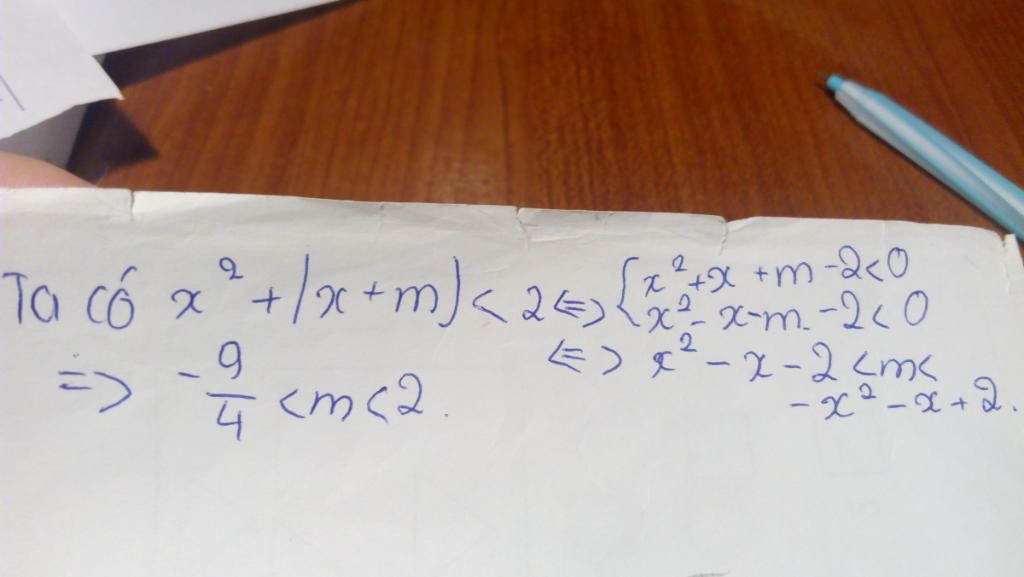 Ta có x² + |x + m| < 2 <=> { x² + x + m - 2 < 0
x² - x - m - 2 < 0
<=> x² - x - 2 < m <
- x² - x + 2.
=> - 9/4 < m < 2.